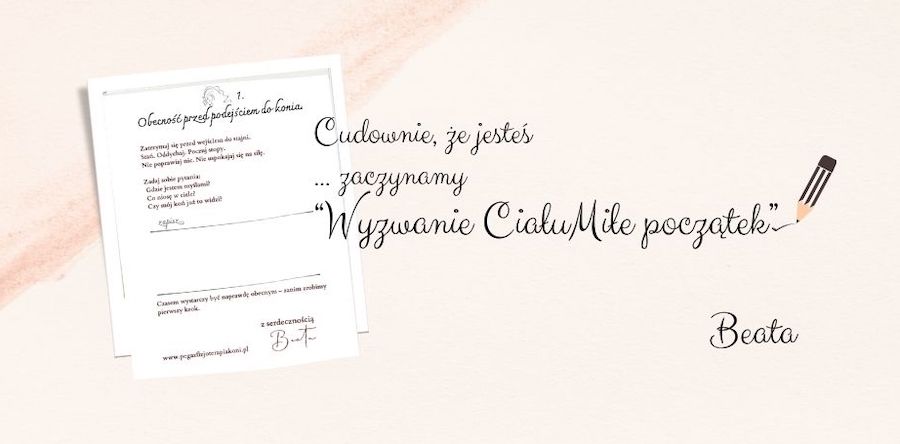 1.
Obecność przed podejściem do konia.
Zatrzymaj się przed wejściem do stajni.
Stań. Oddychaj. Poczuj stopy.
Nie poprawiaj nic. Nie uspokajaj się na siłę.
Zadaj sobie pytania:
Gdzie jestem myślami?
Co niosę w ciele?
Czy mój koń już to widzi?
zapisz
Czasem wystarczy być naprawdę obecnym – zanim zrobimy
pierwszy krok.
z serdecznością
Beata
www.pegazfizjoterapiakoni.pl
Cudownie, że jesteś
... zaczynamy
“Wyzwanie CiałuMiłe początek”
Beata